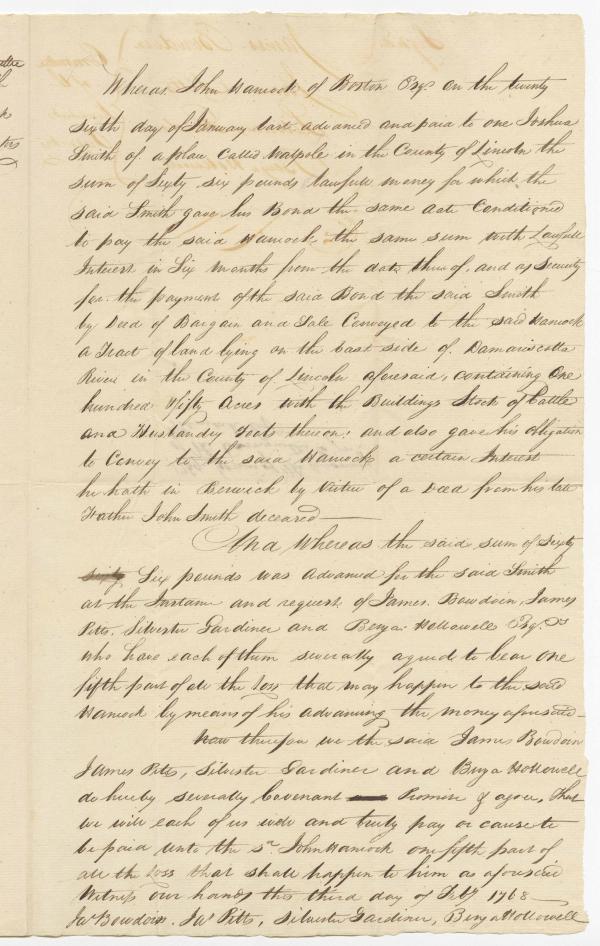 Whereas John Hancock of Boston Esqr. on the twenty
sixth day of January last advanced and paid to one Joshua
Smith of a place called Walpole in the County of Lincoln the
sum of Sixty six pounds lawfull money for which the
said Smith gave his Bond the same date Conditioned
to pay the said Hancock the same sum with Lawfull
Interest in Six months from the date thereof, and as Security
for the payment of the said Bond the said Smith
by Deed of Bargain and Sale Conveyed to the said Hancock
a Tract of land lying on the East side of Damariscotta
River in the County of Lincoln aforesaid, containing One
hundred & fifty Acres with the Buildings Stock of Cattle
and Husbandry Tools thereon; and also gave his Obligation
to Convey to the said Hancock a certain Interest
he hath in Berwick by Virtue of a Deed from his late
Father John Smith deceased —
And Whereas the said sum of Sixty
sixty Six pounds was advanced for the said Smith
at the Instance and request of James Bowdoin, James
Pitts, Silvester Gardiner and Benja. Hollowell Esqrs
who have each of them severally agreed to bear one
fifth part of all the loss that may happen to the said
Hancock by means of his advancing the money aforesaid —
Now therefore we the said James Bowdoin
James Pitts, Silvester Gardiner and Benja Hollowell
do hereby severally Covenant Promise & agree, That
we will each of us well and truly pay or cause to
be paid unto the sd. John Hancock one fifth part of
all the loss that shall happen to him as aforesaid
Witness our hands this third day of Feby 1768 —
Jas Bowdoin. Jas Pitts, Silvester Gardiner, Benja Hollowell